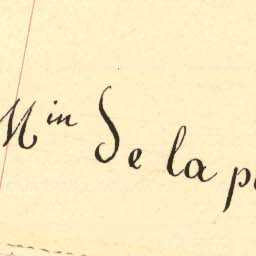 Min De la